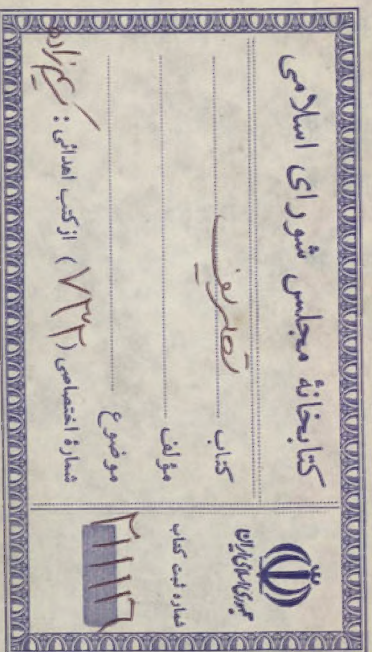 کتابخانهٔ مجلس شورای اسلامی
کتاب تصریف
مؤلف
موضوع
شمارهٔ اختصاصی ( ۷۳۲ ) از کتب اهدائی :
جمهوری اسلامی ایران
شماره ثبت کتاب